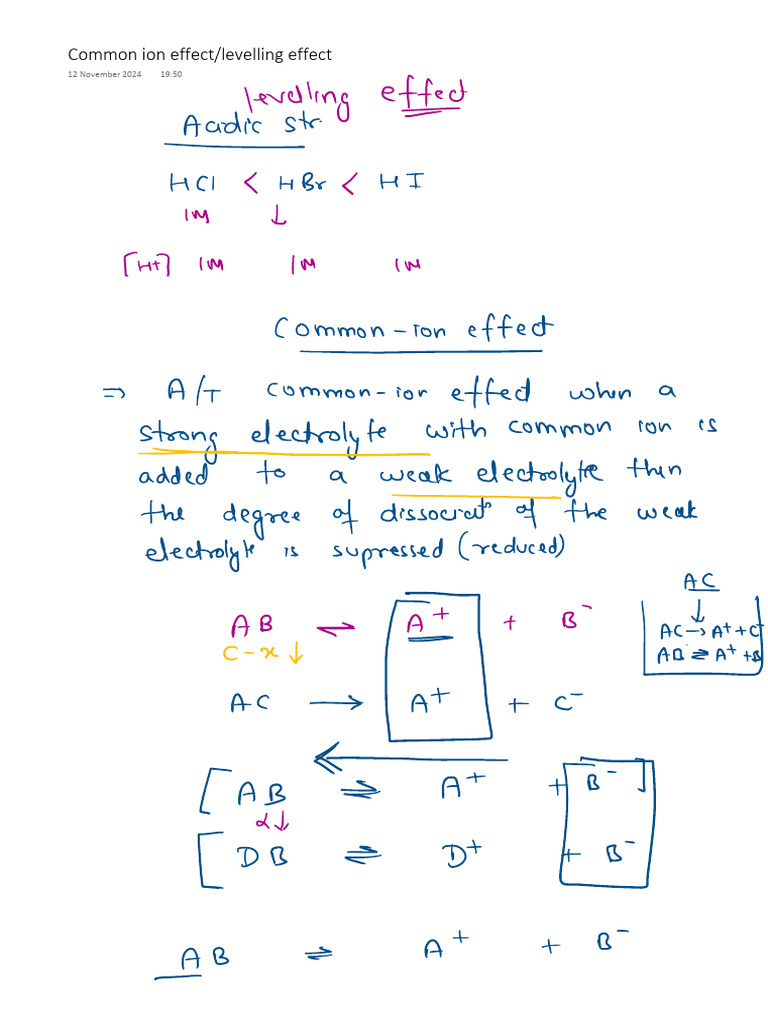 Common ion effect/levelling effect
12 November 2024 19:50
levelling effect
Acidic str
HCl < HBr < HI
1M ↓
[H+] 1M 1M 1M
Common-ion effect
⇒ A/T common-ion effect when a
strong electrolyte with common ion is
added to a weak electrolyte then
the degree of dissociatn of the weak
electrolyte is supressed (reduced)
AC
↓
AC → A+ + C-
AB ⇌ A+ + B
AB ⇌ A+ + B-
C-x ↓
AC → A+ + C-
[AB ⇌ A+ + B-]
α↓
[DB ⇌ D+ + B-
AB ⇌ A+ + B-